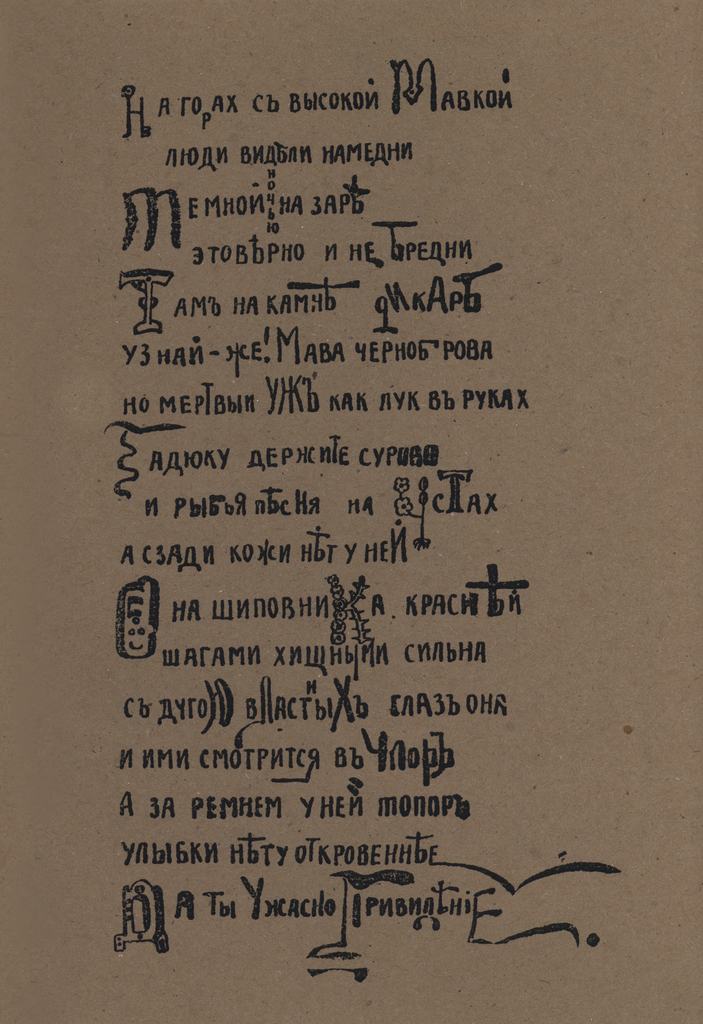 На горах съ высокой Мавкой
люди видѣли намедни
Темной ночью на зарѣ
это вѣрно и не Бредни
Тамъ на камнѣ дикАрѣ
узнай-же! Мава черноброва
но мертвый УЖЪ как лук въ руках
Гадюку держите сурово
и рыбья пѣсня на устах
а сзади кожи нѣт у ней
Она шиповника краснѣй
шагами хищными сильна
съ дугою властныхъ глазъ она
и ими смотрится въ Упоръ
А за ремнем у ней топоръ
улыбки нѣту откровеннѣе
Да ты Ужасно Привидѣніе.